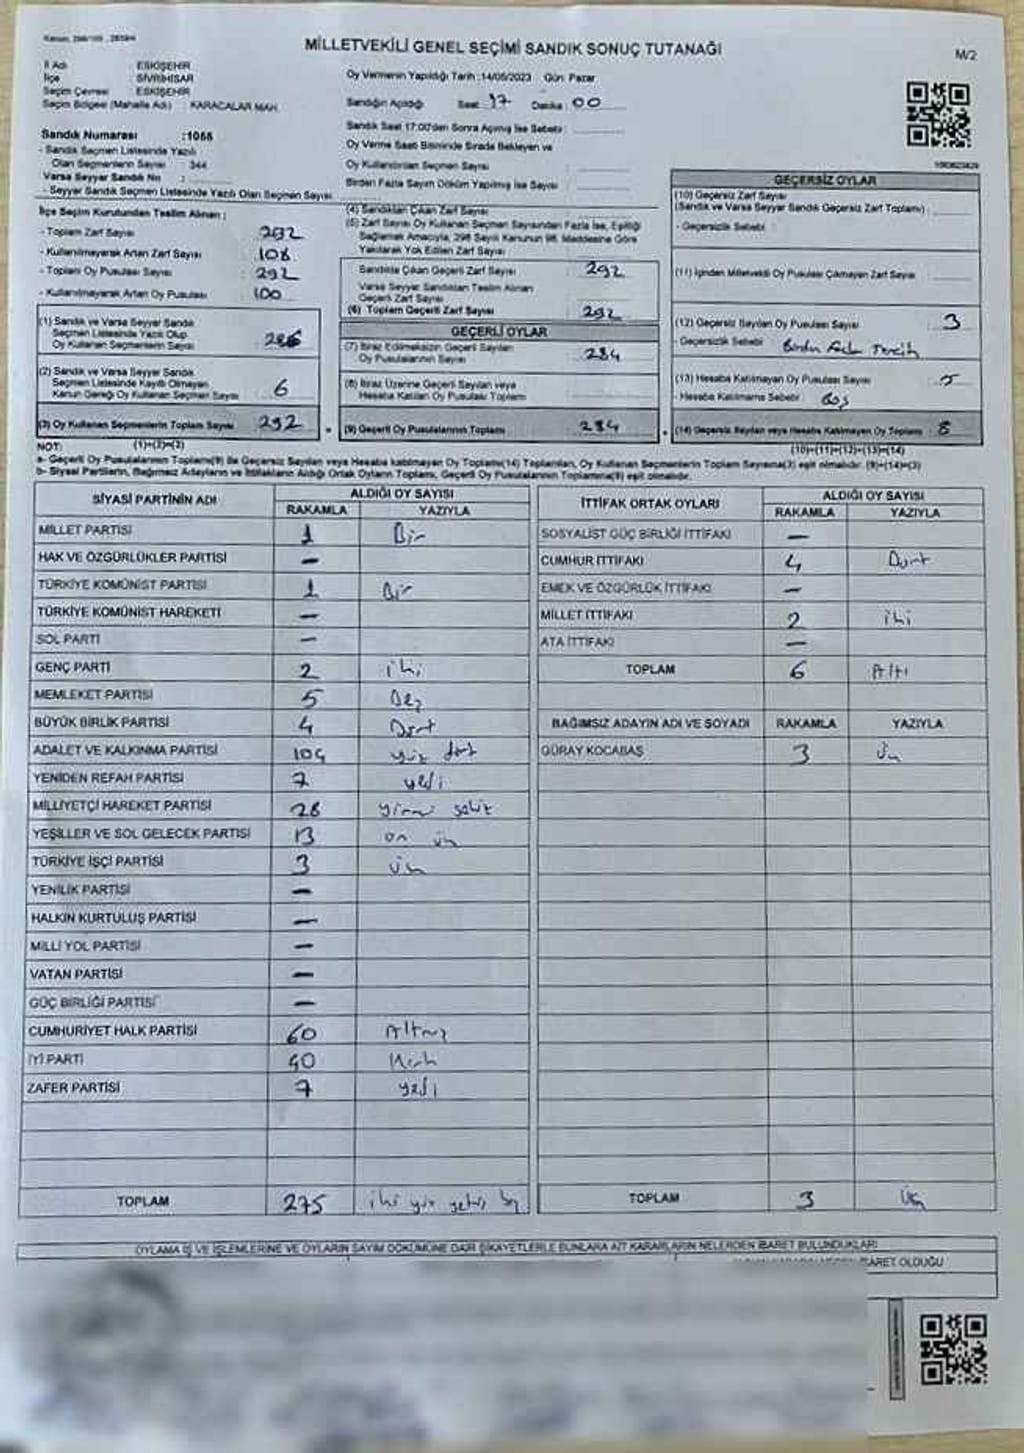 MİLLETVEKİLİ GENEL SEÇİMİ SANDIK SONUÇ TUTANAĞI
M/2
İl Adı : ESKİŞEHİR
İlçe : SİVRİHİSAR
Seçim Çevresi : ESKİŞEHİR
Seçim Bölgesi (Mahalle Adı) : KARACALAR MAH.
Sandık Numarası :1066
- Sandık Seçmen Listesinde Yazılı
Olan Seçmenlerin Sayısı : 344
Varsa Seyyar Sandık No :
- Seyyar Sandık Seçmen Listesinde Yazılı Olan Seçmen Sayısı
Oy Vermenin Yapıldığı Tarih :14/05/2023 Gün: Pazar
Sandığın Açıldığı Saat : 17 Dakika : 00
Sandık Saat 17:00'den Sonra Açılmış İse Sebebi :
Oy Verme Saati Bitiminde Sırada Bekleyen ve
Oy Kullandırılan Seçmen Sayısı
Birden Fazla Sayım Döküm Yapılmış İse Sayısı
İlçe Seçim Kurulundan Teslim Alınan :
- Toplam Zarf Sayısı
- Kullanılmayarak Artan Zarf Sayısı : 108
- Toplam Oy Pusulası Sayısı : 292
- Kullanılmayarak Artan Oy Pusulası : 100
(1) Sandık ve Varsa Seyyar Sandık
Seçmen Listesinde Yazılı Olup
Oy Kullanan Seçmenlerin Sayısı 286
(2) Sandık ve Varsa Seyyar Sandık
Seçmen Listesinde Kayıtlı Olmayan
Kanun Gereği Oy Kullanan Seçmen Sayısı 6
(3) Oy Kullanan Seçmenlerin Toplam Sayısı 292
(1)+(2)=(3)
(4) Sandıktan Çıkan Zarf Sayısı
(5) Zarf Sayısı Oy Kullanan Seçmen Sayısından Fazla İse, Eşitliği
Sağlamak Amacıyla, 298 Sayılı Kanunun 98. Maddesine Göre
Yakılarak Yok Edilen Zarf Sayısı
Sandıkta Çıkan Geçerli Zarf Sayısı : 292
Varsa Seyyar Sandıktan Teslim Alınan
Geçerli Zarf Sayısı
(6) Toplam Geçerli Zarf Sayısı : 292
GEÇERLİ OYLAR
(7) İtiraz Edilmeksizin Geçerli Sayılan
Oy Pusulalarının Sayısı : 284
(8) İtiraz Üzerine Geçerli Sayılan veya
Hesaba Katılan Oy Pusulaları Toplamı
(9) Geçerli Oy Pusulalarının Toplamı : 284
GEÇERSİZ OYLAR
(10) Geçersiz Zarf Sayısı
(Sandık ve Varsa Seyyar Sandık Geçersiz Zarf Toplamı) :
- Geçersizlik Sebebi :
(11) İçinden Milletvekili Oy Pusulası Çıkmayan Zarf Sayısı
(12) Geçersiz Sayılan Oy Pusulası Sayısı : 3
- Geçersizlik Sebebi : Birden Fazla Tercih
(13) Hesaba Katılmayan Oy Pusulası Sayısı : 5
- Hesaba Katılmama Sebebi : Boş
(14) Geçersiz Sayılan veya Hesaba Katılmayan Oy Toplamı : 8
(10)+(11)+(12)+(13)=(14)
NOT:
a- Geçerli Oy Pusulalarının Toplamı(9) ile Geçersiz Sayılan veya Hesaba katılmayan Oy Toplamı(14) Toplamları, Oy Kullanan Seçmenlerin Toplam Sayısına(3) eşit olmalıdır. (9)+(14)=(3)
b- Siyasi Partilerin, Bağımsız Adayların ve İttifakların Aldığı Ortak Oyların Toplamı, Geçerli Oy Pusulalarının Toplamına(9) eşit olmalıdır.
SİYASİ PARTİNİN ADI ALDIĞI OY SAYISI
RAKAMLA YAZIYLA
MİLLET PARTİSİ 1 Bir
HAK VE ÖZGÜRLÜKLER PARTİSİ —
TÜRKİYE KOMÜNİST PARTİSİ 1 Bir
TÜRKİYE KOMÜNİST HAREKETİ —
SOL PARTİ —
GENÇ PARTİ 2 iki
MEMLEKET PARTİSİ 5 Beş
BÜYÜK BİRLİK PARTİSİ 4 Dört
ADALET VE KALKINMA PARTİSİ 104 yüz dört
YENİDEN REFAH PARTİSİ 7 yedi
MİLLİYETÇİ HAREKET PARTİSİ 28 yirmi sekiz
YEŞİLLER VE SOL GELECEK PARTİSİ 13 on üç
TÜRKİYE İŞÇİ PARTİSİ 3 üç
YENİLİK PARTİSİ —
HALKIN KURTULUŞ PARTİSİ —
MİLLİ YOL PARTİSİ —
VATAN PARTİSİ —
GÜÇ BİRLİĞİ PARTİSİ —
CUMHURİYET HALK PARTİSİ 60 Altmış
İYİ PARTİ 40 Kırk
ZAFER PARTİSİ 7 yedi
TOPLAM 275 iki yüz yetmiş beş
İTTİFAK ORTAK OYLARI ALDIĞI OY SAYISI
RAKAMLA YAZIYLA
SOSYALİST GÜÇ BİRLİĞİ İTTİFAKI —
CUMHUR İTTİFAKI 4 Dört
EMEK VE ÖZGÜRLÜK İTTİFAKI —
MİLLET İTTİFAKI 2 iki
ATA İTTİFAKI —
TOPLAM 6 Altı
BAĞIMSIZ ADAYIN ADI VE SOYADI RAKAMLA YAZIYLA
GÜRAY KOCABAŞ 3 üç
TOPLAM 3 Üç
OYLAMA İŞ VE İŞLEMLERİNE VE OYLARIN SAYIM DÖKÜMÜNE DAİR ŞİKAYETLERLE BUNLARA AİT KARARLARIN NELERDEN İBARET BULUNDUKLARI
İBARET OLDUĞU